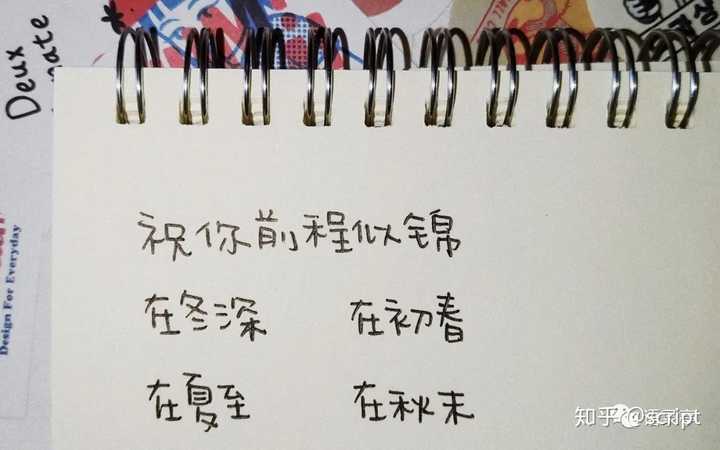 Deux
Design For Everyday
祝你前程似锦
在冬深 在初春
在夏至 在秋末
知乎 @script